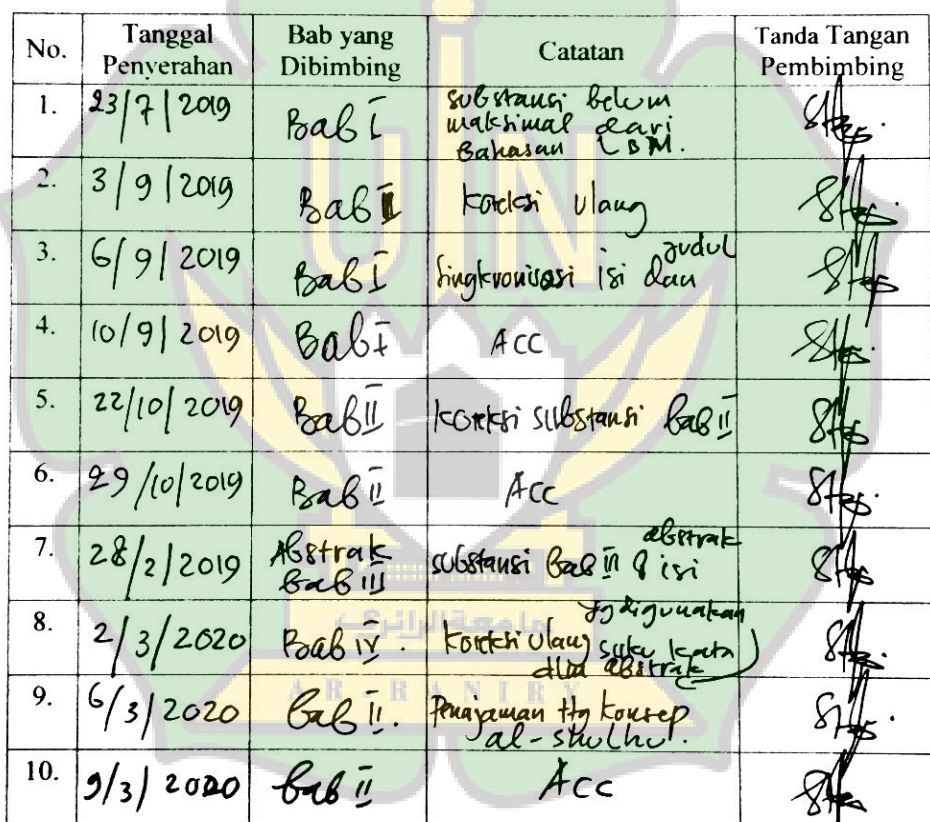 No. Tanggal Penyerahan Bab yang Dibimbing Catatan Tanda Tangan Pembimbing
1. 23/7/2019 Bab I substansi belum
maksimal dari
Bahasan LBM.
2. 3/9/2019 Bab II koreksi ulang
3. 6/9/2019 Bab I singkronisasi isi dan judul
4. 10/9/2019 Bab I ACC
5. 22/10/2019 Bab II koreksi substansi bab II
6. 29/10/2019 Bab II Acc
7. 28/2/2019 Abstrak
bab III substansi bab III & isi abstrak
8. 2/3/2020 Bab IV. koreksi ulang suku kata yg digunakan
dlm abstrak
9. 6/3/2020 bab II. Penajaman ttg konsep
al-shulhu.
10. 9/3/2020 bab II Acc
UIN
جامعة الرانري
AR-RANIRY